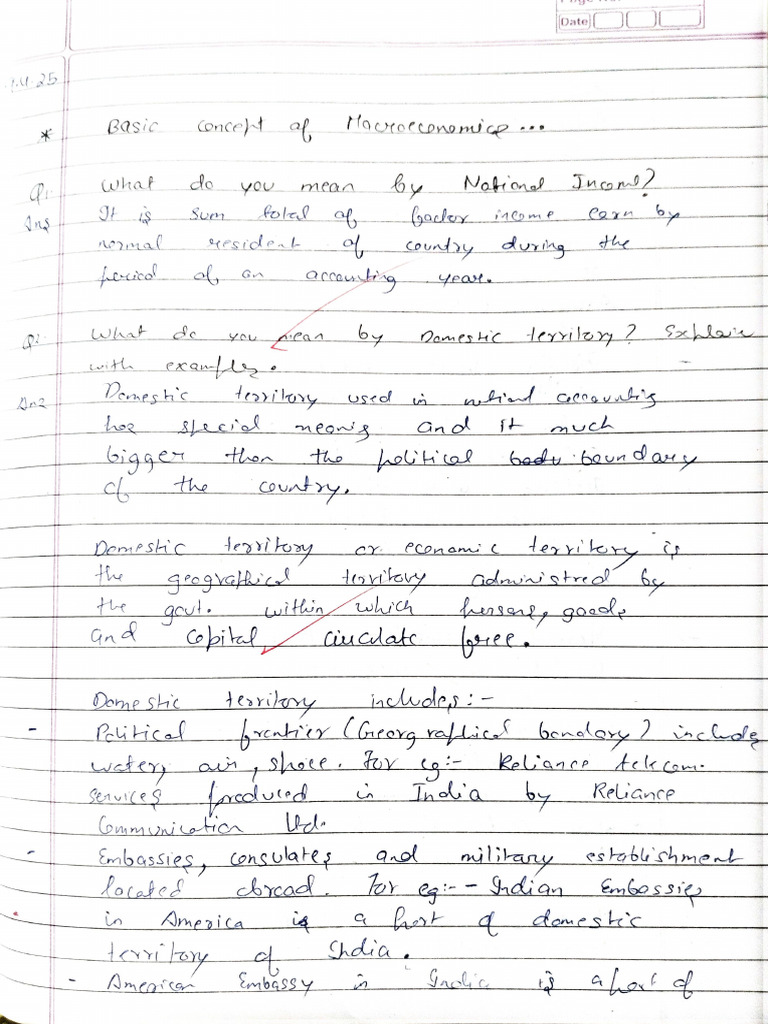 Date
* Basic concept of Macroeconomics...
Q1: What do you mean by National Income?
Ans It is sum total of factor income earn by
normal resident of country during the
period of an accounting year.
Q: What do you mean by Domestic territory? Explain
with examples.
Ans Domestic territory used in national accounting
has special meaning and it much
bigger than the political boundary
of the country.
Domestic territory or economic territory is
the geographical territory administred by
the govt. within which persons, goods
and capital circulate free.
Domestic territory includes:-
- Political frontier (Geographical bondary) includes
water, air, space. For eg:- Reliance telecom.
services produced in India by Reliance
Communication Ltd.
- Embassies, consulates and military establishment
located abroad. For eg:- - Indian Embassies
in America is a part of domestic
territory of India.
- American Embassy in India is a part of